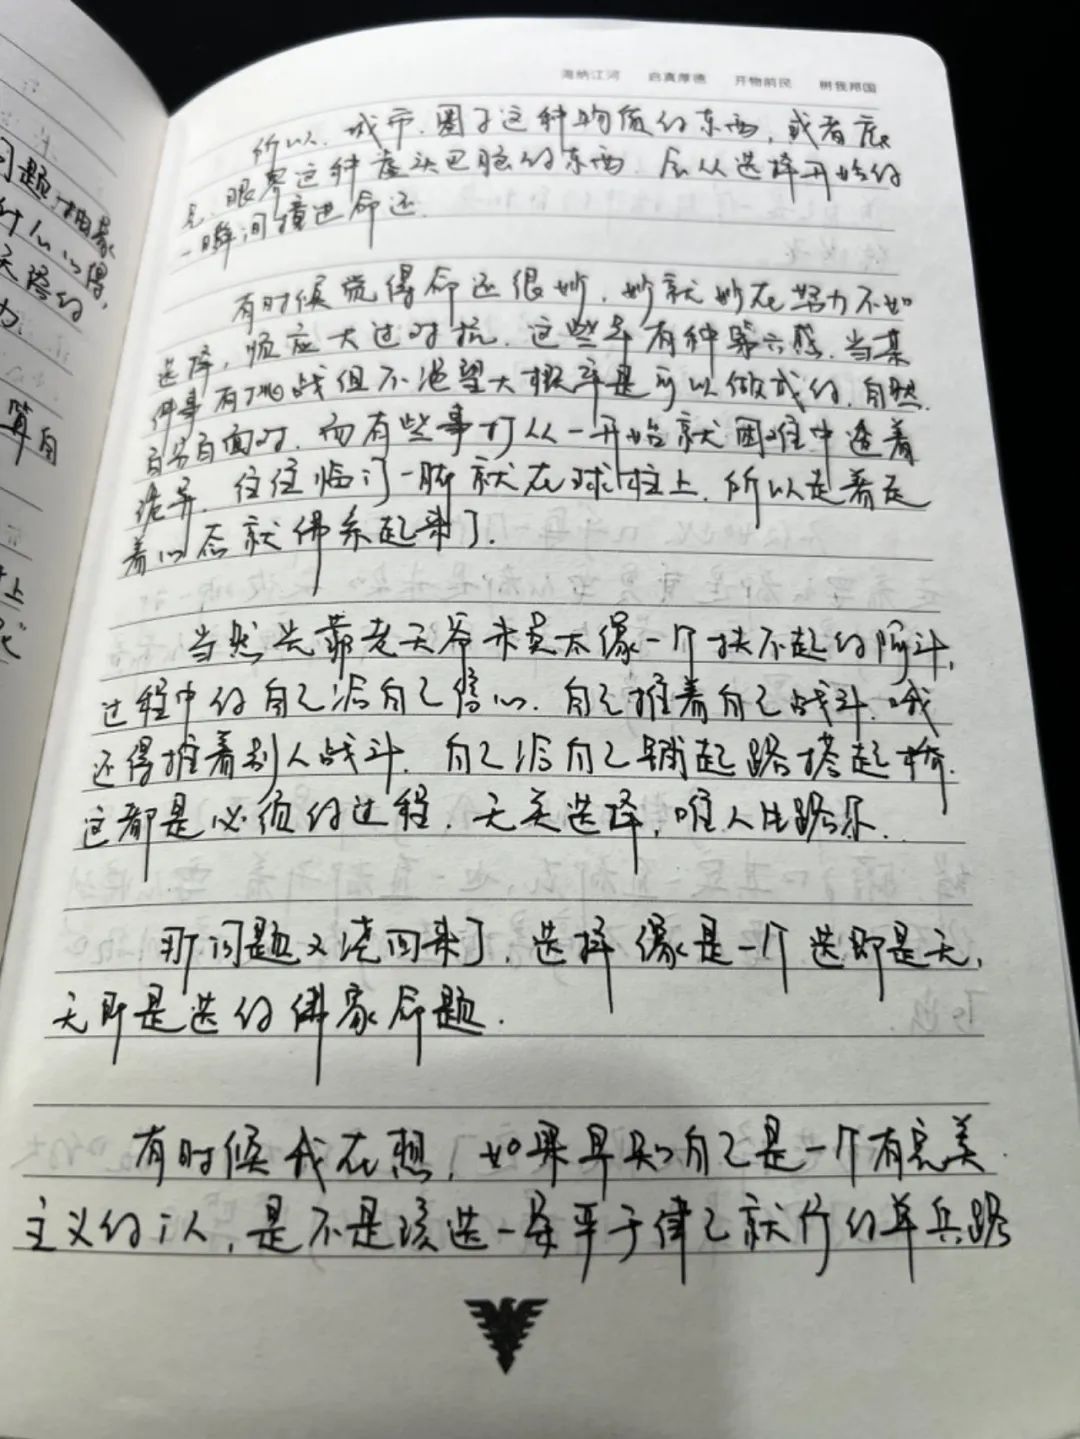 海纳江河 启真厚德 开物前民 树我邦国
所以，城市、圈子这种物质的东西，或者庇
见、眼界这种虚头巴脑的东西，会从选择开始的
一瞬间撞进命运.
有时候觉得命运很妙，妙就妙在努力不如
选择，顺应大过对抗，这些年有种第六感，当某
件事有挑战但不绝望大概率是可以做成的，自然.
而有些事打从一开始就困难中透着
诡异，往往临门一脚就在球柱上，所以走着走
着心态就佛系起来了.
当然光靠老天爷未免太像一个扶不起的阿斗，
过程中的自己给自己信心，自己推着自己战斗，哦
还得推着别人战斗，自己给自己铺起路搭起桥.
这都是必须的过程，无关选择，唯人生路尔.
那问题又绕回来了，选择像是一个选即是无，
无即是选的佛家命题.
有时候我在想，如果早知自己是一个有完美
主义的人，是不是该选一条平于律己就行的单兵路
问题，相象
算自